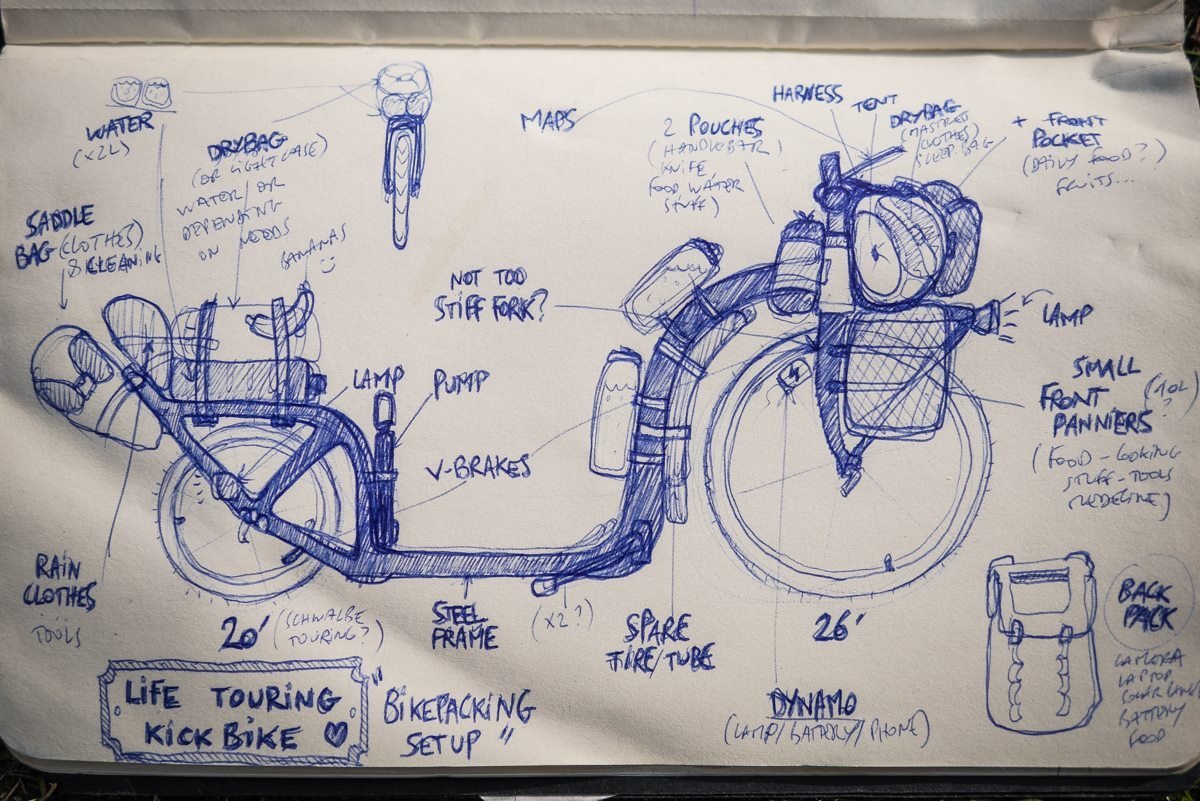 WATER
(x2L)
DRYBAG
(OR LIGHT CASE)
WATER/OR
DEPENDING
ON NEEDS
SADDLE
BAG (CLOTHES)
& CLEANING
BANANAS
MAPS
2 POUCHES
(HANDLEBAR)
KNIFE
FOOD WATER
STUFF)
HARNESS
TENT
DRYBAG
CLOTHES
SLEEP. BAG)
+ FRONT
POCKET
(DAILY FOOD?)
FRUITS...
NOT TOO
STIFF FORK?
LAMP
LAMP
PUMP
V-BRAKES
SMALL
FRONT
PANNIERS
(10L
?)
(FOOD - COOKING
STUFF - TOOLS
RAIN
CLOTHES
TOOLS
20'
(SCHWALBE
TOURING?)
STEEL
FRAME
(x2?)
SPARE
TIRE/TUBE
26'
DYNAMO
(LAMP/BATTERY/PHONE)
BACK
PACK
CAMERA
LAPTOP
BATTERY
FOOD
LIFE TOURING
KICK BIKE
"BIKEPACKING
SETUP"